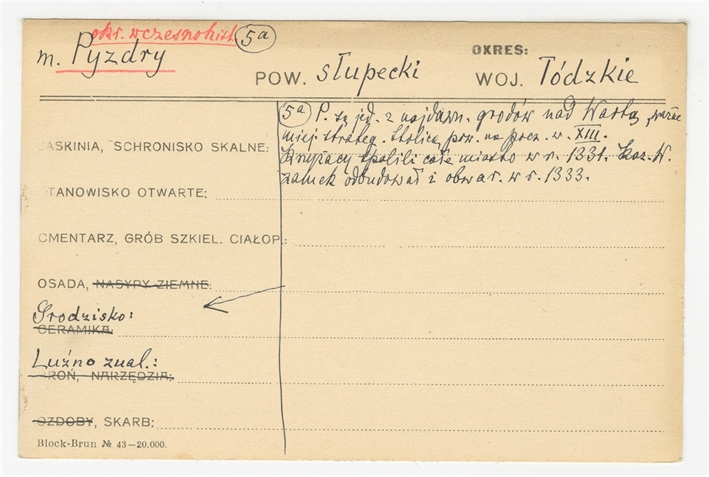 okr. wczesnohist. 5a
m. Pyzdry
OKRES:
POW. słupecki WOJ. Łódzkie
5a P. są jed. z najdawn. grodów nad Wartą, ważne
miej. strateg. Stolicą pow. na pocz. w. XIII.
Krzyżacy spalili całe miasto w r. 1331. Kaz. W.
zamek odbudował i obwar. w r. 1333.
JASKINIA, SCHRONISKO SKALNE:
STANOWISKO OTWARTE:
CMENTARZ, GRÓB SZKIEL. CIAŁOP.:
OSADA, NASYPY ZIEMNE:
Grodzisko:
CERAMIKA:
Luźno znal.:
BROŃ, NARZĘDZIA:
OZDOBY, SKARB:
Block-Brun № 43—20.000.